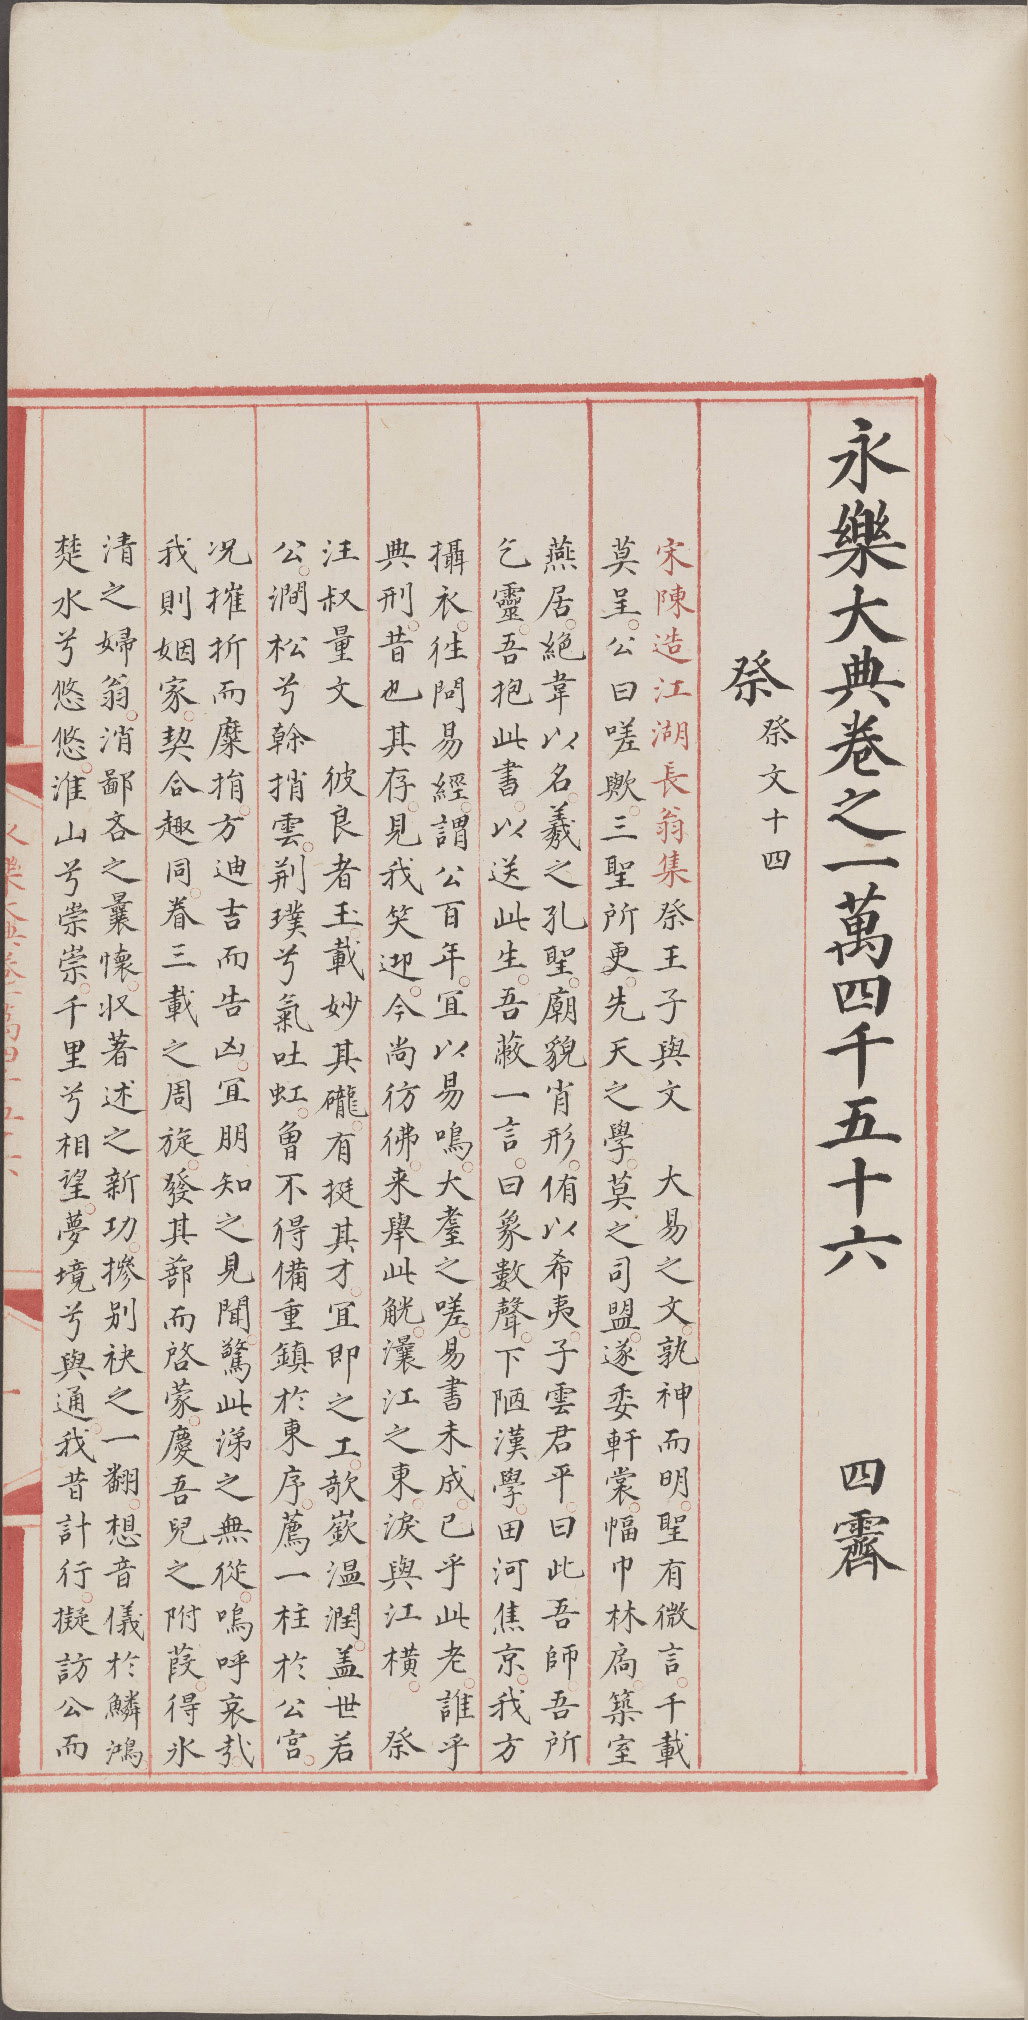 永樂大典卷之一萬四千五十六 四霽
祭 祭文十四
宋陳造江湖長翁集祭王子與文 大易之文孰神而明聖有微言千載
莫呈公曰嗟歟三聖所更先天之學莫之司盟遂委軒裳幅巾林扃築室
燕居絶韋以名羲之孔聖廟貌肖形侑以希夷子雲君平曰此吾師吾所
乞靈吾抱此書以送此生吾蔽一言曰象數聲下陋漢學田河焦京我方
攝衣徃問易經謂公百年宜以易鳴大耋之嗟易書未成已乎此老誰乎
典刑昔也其存見我笑迎今尚彷彿来舉此觥灢江之東淚與江橫 祭
汪叔量文 彼良者玉載妙其礲有挺其才宜即之工歆嶔温潤盖世若
公澗松兮榦捎雲荆璞兮氣吐虹魯不得備重鎮於東序薦一柱於公宫
况摧折而糜捐方迪吉而告凶宜朋知之見聞驚此涕之無從嗚呼哀哉
我則姻家契合趣同眷三載之周旋發其蔀而啓蒙慶吾兒之附葭得氷
清之婦翁消鄙吝之曩懷收著述之新功摻别袂之一翻想音儀於鱗鴻
楚水兮悠悠淮山兮崇崇千里兮相望夢境兮與通我昔計行擬訪公而